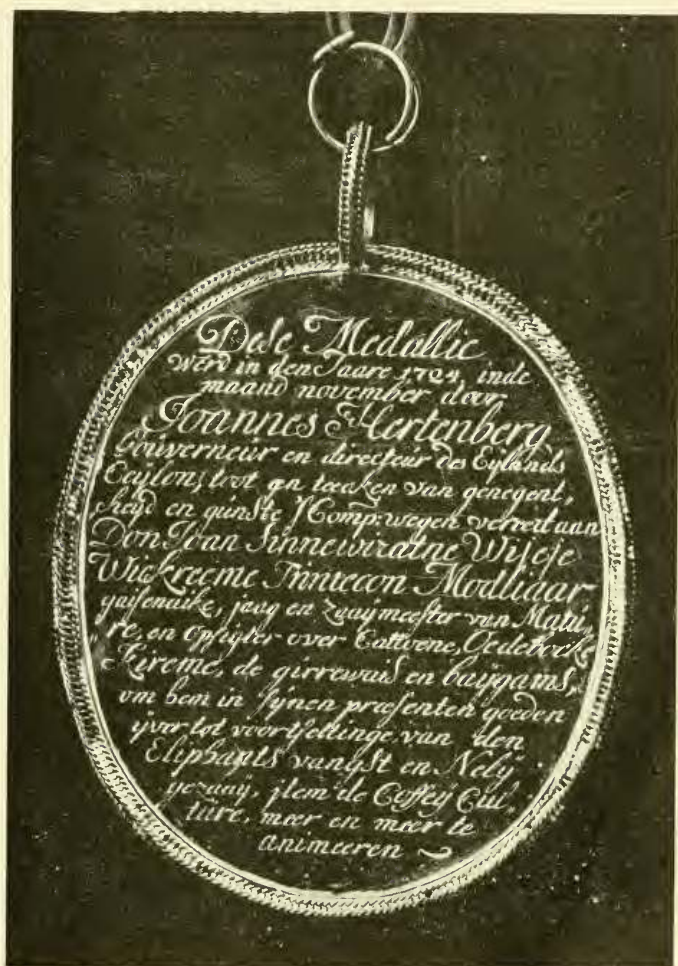 Dese Medallie
werd in den Jaare 1724 inde
maand november door
Joannes Hertenberg
Gouverneur en directeur des Eylands
Ceylons, toot en teeken van genegent,
heyd en gunste s'Comp:s wegen vereert aan
Don Joan Sinnewiratne Wijese
Wickreeme Trintecon Modliaar
gaisenaike, jaag en zaaymeester van Matu,
re, en opsigter over Cattoene, Oedebocke
Kireme, de girrewais en baijgams,
om hem in sijnen præsenten goeden
ijver tot voortsettinge van den
Eliphants vangst en Nelij
gezaaij, item de Coffeij Cul,
ture, meer en meer te
animeeren